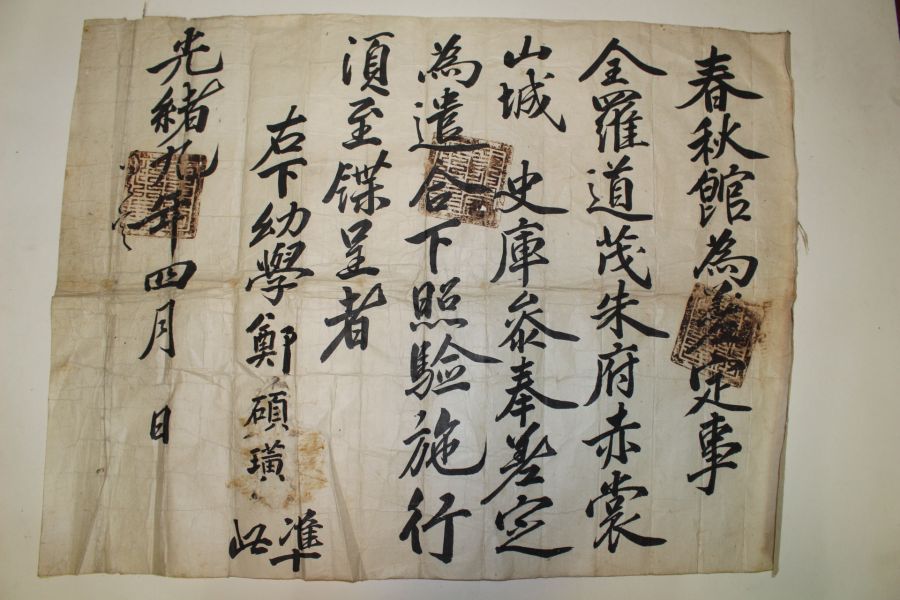 春秋館為差定事
全羅道茂朱府赤裳
山城 史庫參奉差定
為遣合下照驗施行
須至牒呈者
右下幼學鄭碩璜 準此
光緒九年四月 日